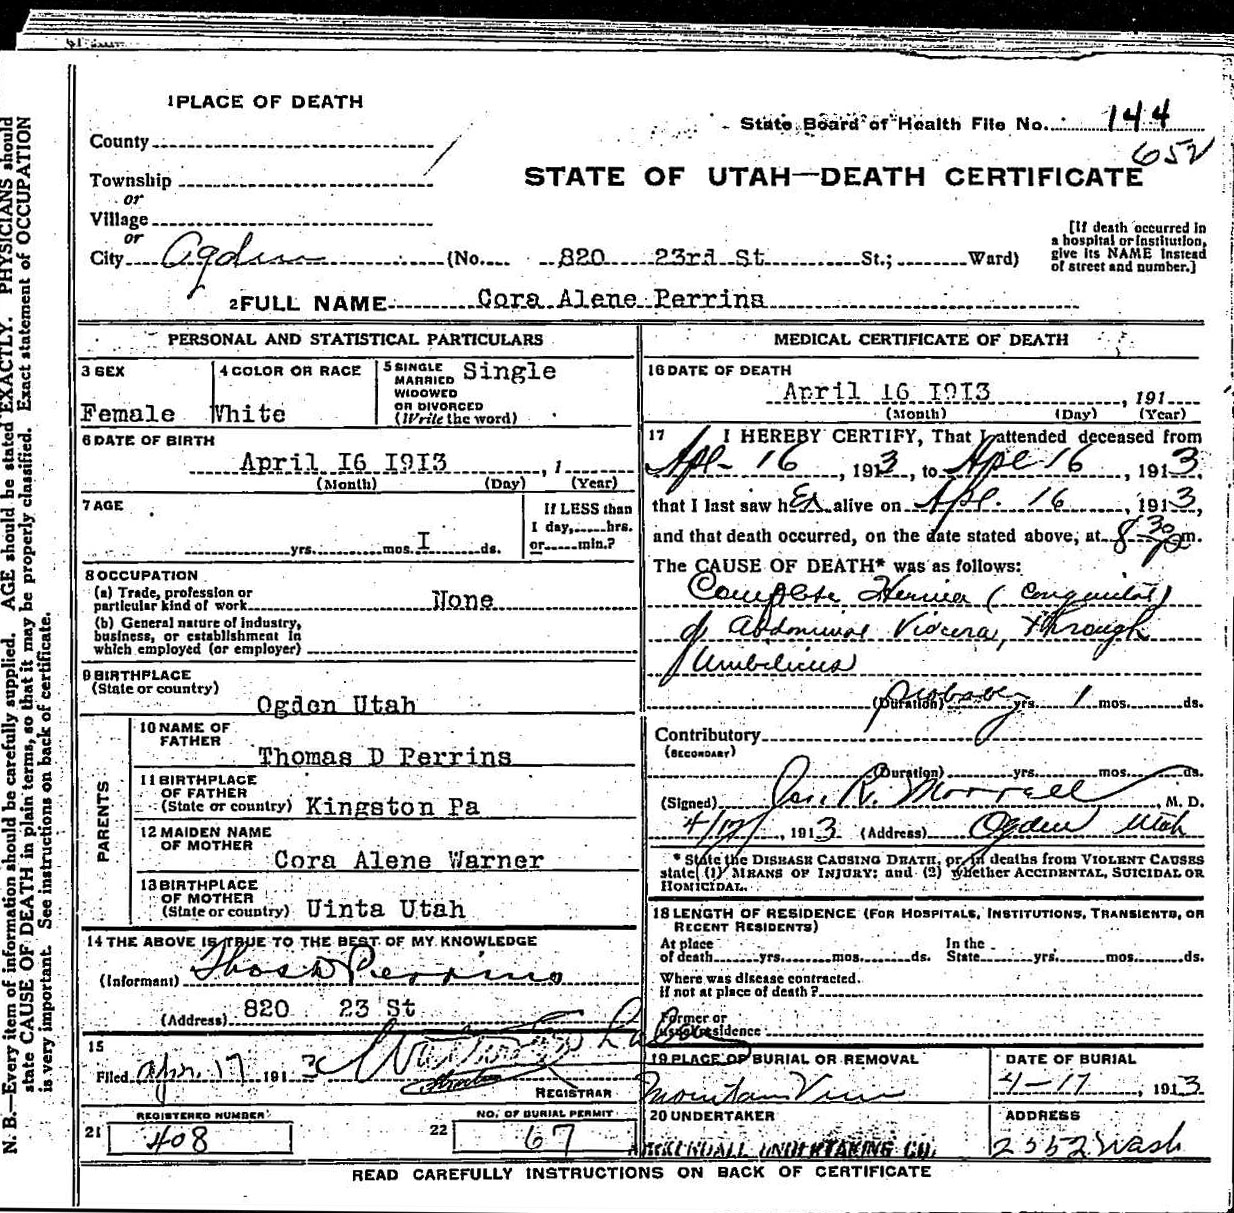 1 PLACE OF DEATH
State Board of Health File No. 144
652
County
Township
or
Village
or
STATE OF UTAH—DEATH CERTIFICATE
City Ogden (No. 820 23rd St St.; Ward)
[If death occurred in
a hospital or institution,
give its NAME instead
of street and number.]
2 FULL NAME Cora Alene Perrins
PERSONAL AND STATISTICAL PARTICULARS
3 SEX
Female
4 COLOR OR RACE
White
5 SINGLE
MARRIED
WIDOWED
OR DIVORCED
(Write the word)
Single
6 DATE OF BIRTH
April I6 I9I3 , 1
(Month) (Day) (Year)
7 AGE
yrs. mos. I ds.
If LESS than
1 day, hrs.
or min.?
8 OCCUPATION
(a) Trade, profession or
particular kind of work None
(b) General nature of industry,
business, or establishment in
which employed (or employer)
9 BIRTHPLACE
(State or country)
Ogden Utah
PARENTS
10 NAME OF
FATHER
Thomas D Perrins
11 BIRTHPLACE
OF FATHER
(State or country) Kingston Pa
12 MAIDEN NAME
OF MOTHER
Cora Alene Warner
13 BIRTHPLACE
OF MOTHER
(State or country) Uinta Utah
14 THE ABOVE IS TRUE TO THE BEST OF MY KNOWLEDGE
(Informant) Thos D Perrins
(Address) 820 23 St
15
Filed Apr. 17 1913
REGISTRAR
REGISTERED NUMBER
21 408
NO. OF BURIAL PERMIT
22 67
MEDICAL CERTIFICATE OF DEATH
16 DATE OF DEATH
April I6 I9I3 , 191
(Month) (Day) (Year)
17 I HEREBY CERTIFY, That I attended deceased from
Apl- 16, 1913, to Apl 16, 1913,
that I last saw her alive on Apl. 16, 1913,
and that death occurred, on the date stated above, at 8 30 m.
The CAUSE OF DEATH* was as follows:
Complete Hernia (Congenital)
of Abdominal Viscera, through
Umbilicus
(Duration) probably yrs. 1 mos. ds.
Contributory
(SECONDARY)
(Duration) yrs. mos. ds.
(Signed) R. Morrell, M. D.
4/17, 1913 (Address) Ogden Utah
* State the DISEASE CAUSING DEATH, or, in deaths from VIOLENT CAUSES
state (1) MEANS OF INJURY; and (2) whether ACCIDENTAL, SUICIDAL OR
HOMICIDAL.
18 LENGTH OF RESIDENCE (FOR HOSPITALS, INSTITUTIONS, TRANSIENTS, OR
RECENT RESIDENTS)
At place
of death yrs. mos. ds.
In the
State yrs. mos. ds.
Where was disease contracted.
if not at place of death?
Former or
usual residence
19 PLACE OF BURIAL OR REMOVAL
Mountain View
DATE OF BURIAL
4-17, 1913
20 UNDERTAKER
UNDERTAKING CO.
ADDRESS
2352 Wash
READ CAREFULLY INSTRUCTIONS ON BACK OF CERTIFICATE
N. B.—Every item of information should be carefully supplied. AGE should be stated EXACTLY. PHYSICIANS should
state CAUSE OF DEATH in plain terms, so that it may be properly classified. Exact statement of OCCUPATION
is very important. See instructions on back of certificate.